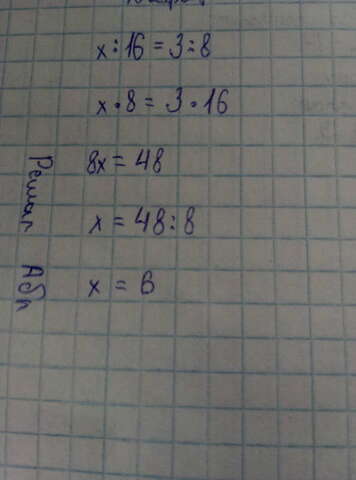 x:16=3:8
x·8=3·16
8x=48
x=48:8
x=6
Решал